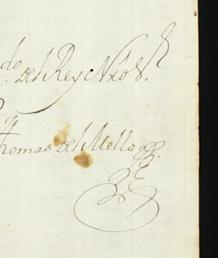 do del Rey Nro Sr
Thomas del Mello